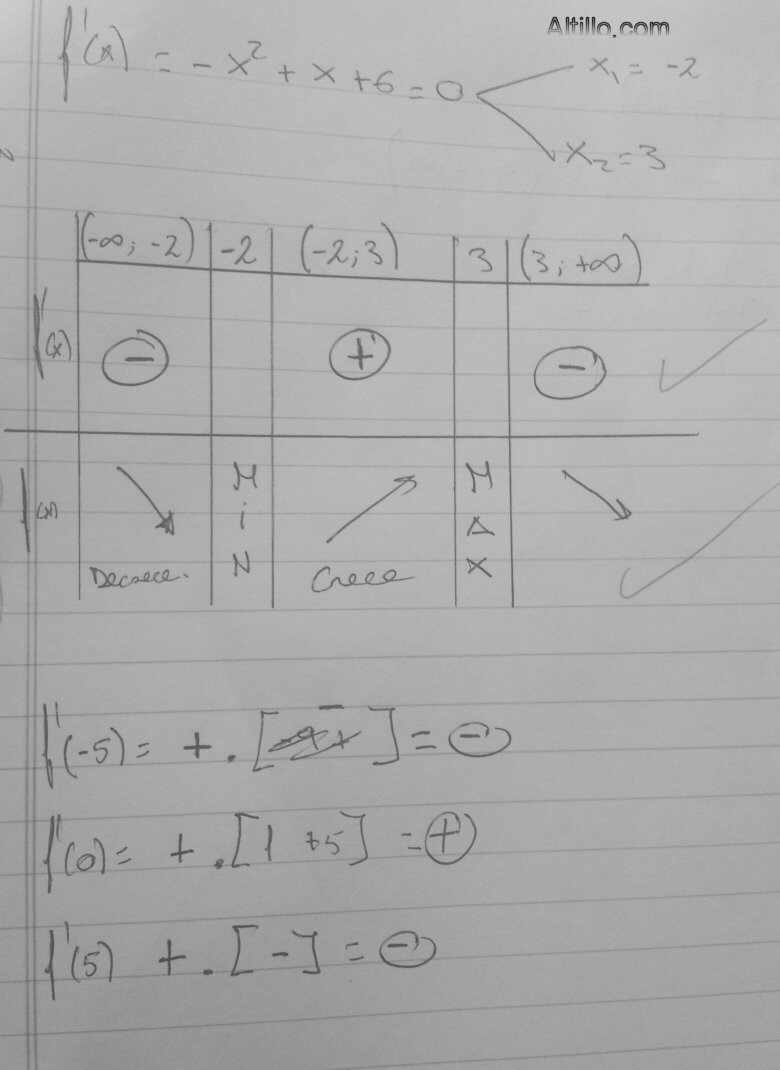 Altillo.com
f'(x) = - x² + x + 6 = 0
x₁ = -2
x₂ = 3
(-∞; -2) | -2 | (-2; 3) | 3 | (3; +∞)
f'(x) | - | | + | | -
f(x) | Decrece. | MiN | Crece | MAX |
f'(-5) = + . [ - ] = -
f'(0) = + . [1 +5] = +
f'(5) + . [ - ] = -